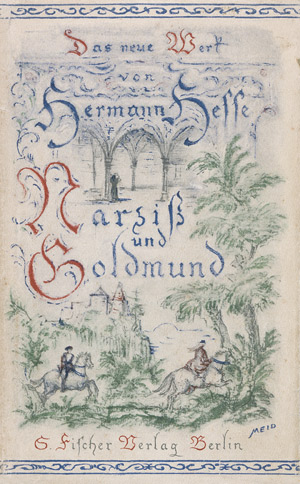 Das neue Werk
von
Hermann Hesse
Narziß
und
Goldmund
MEID
S. Fischer Verlag Berlin